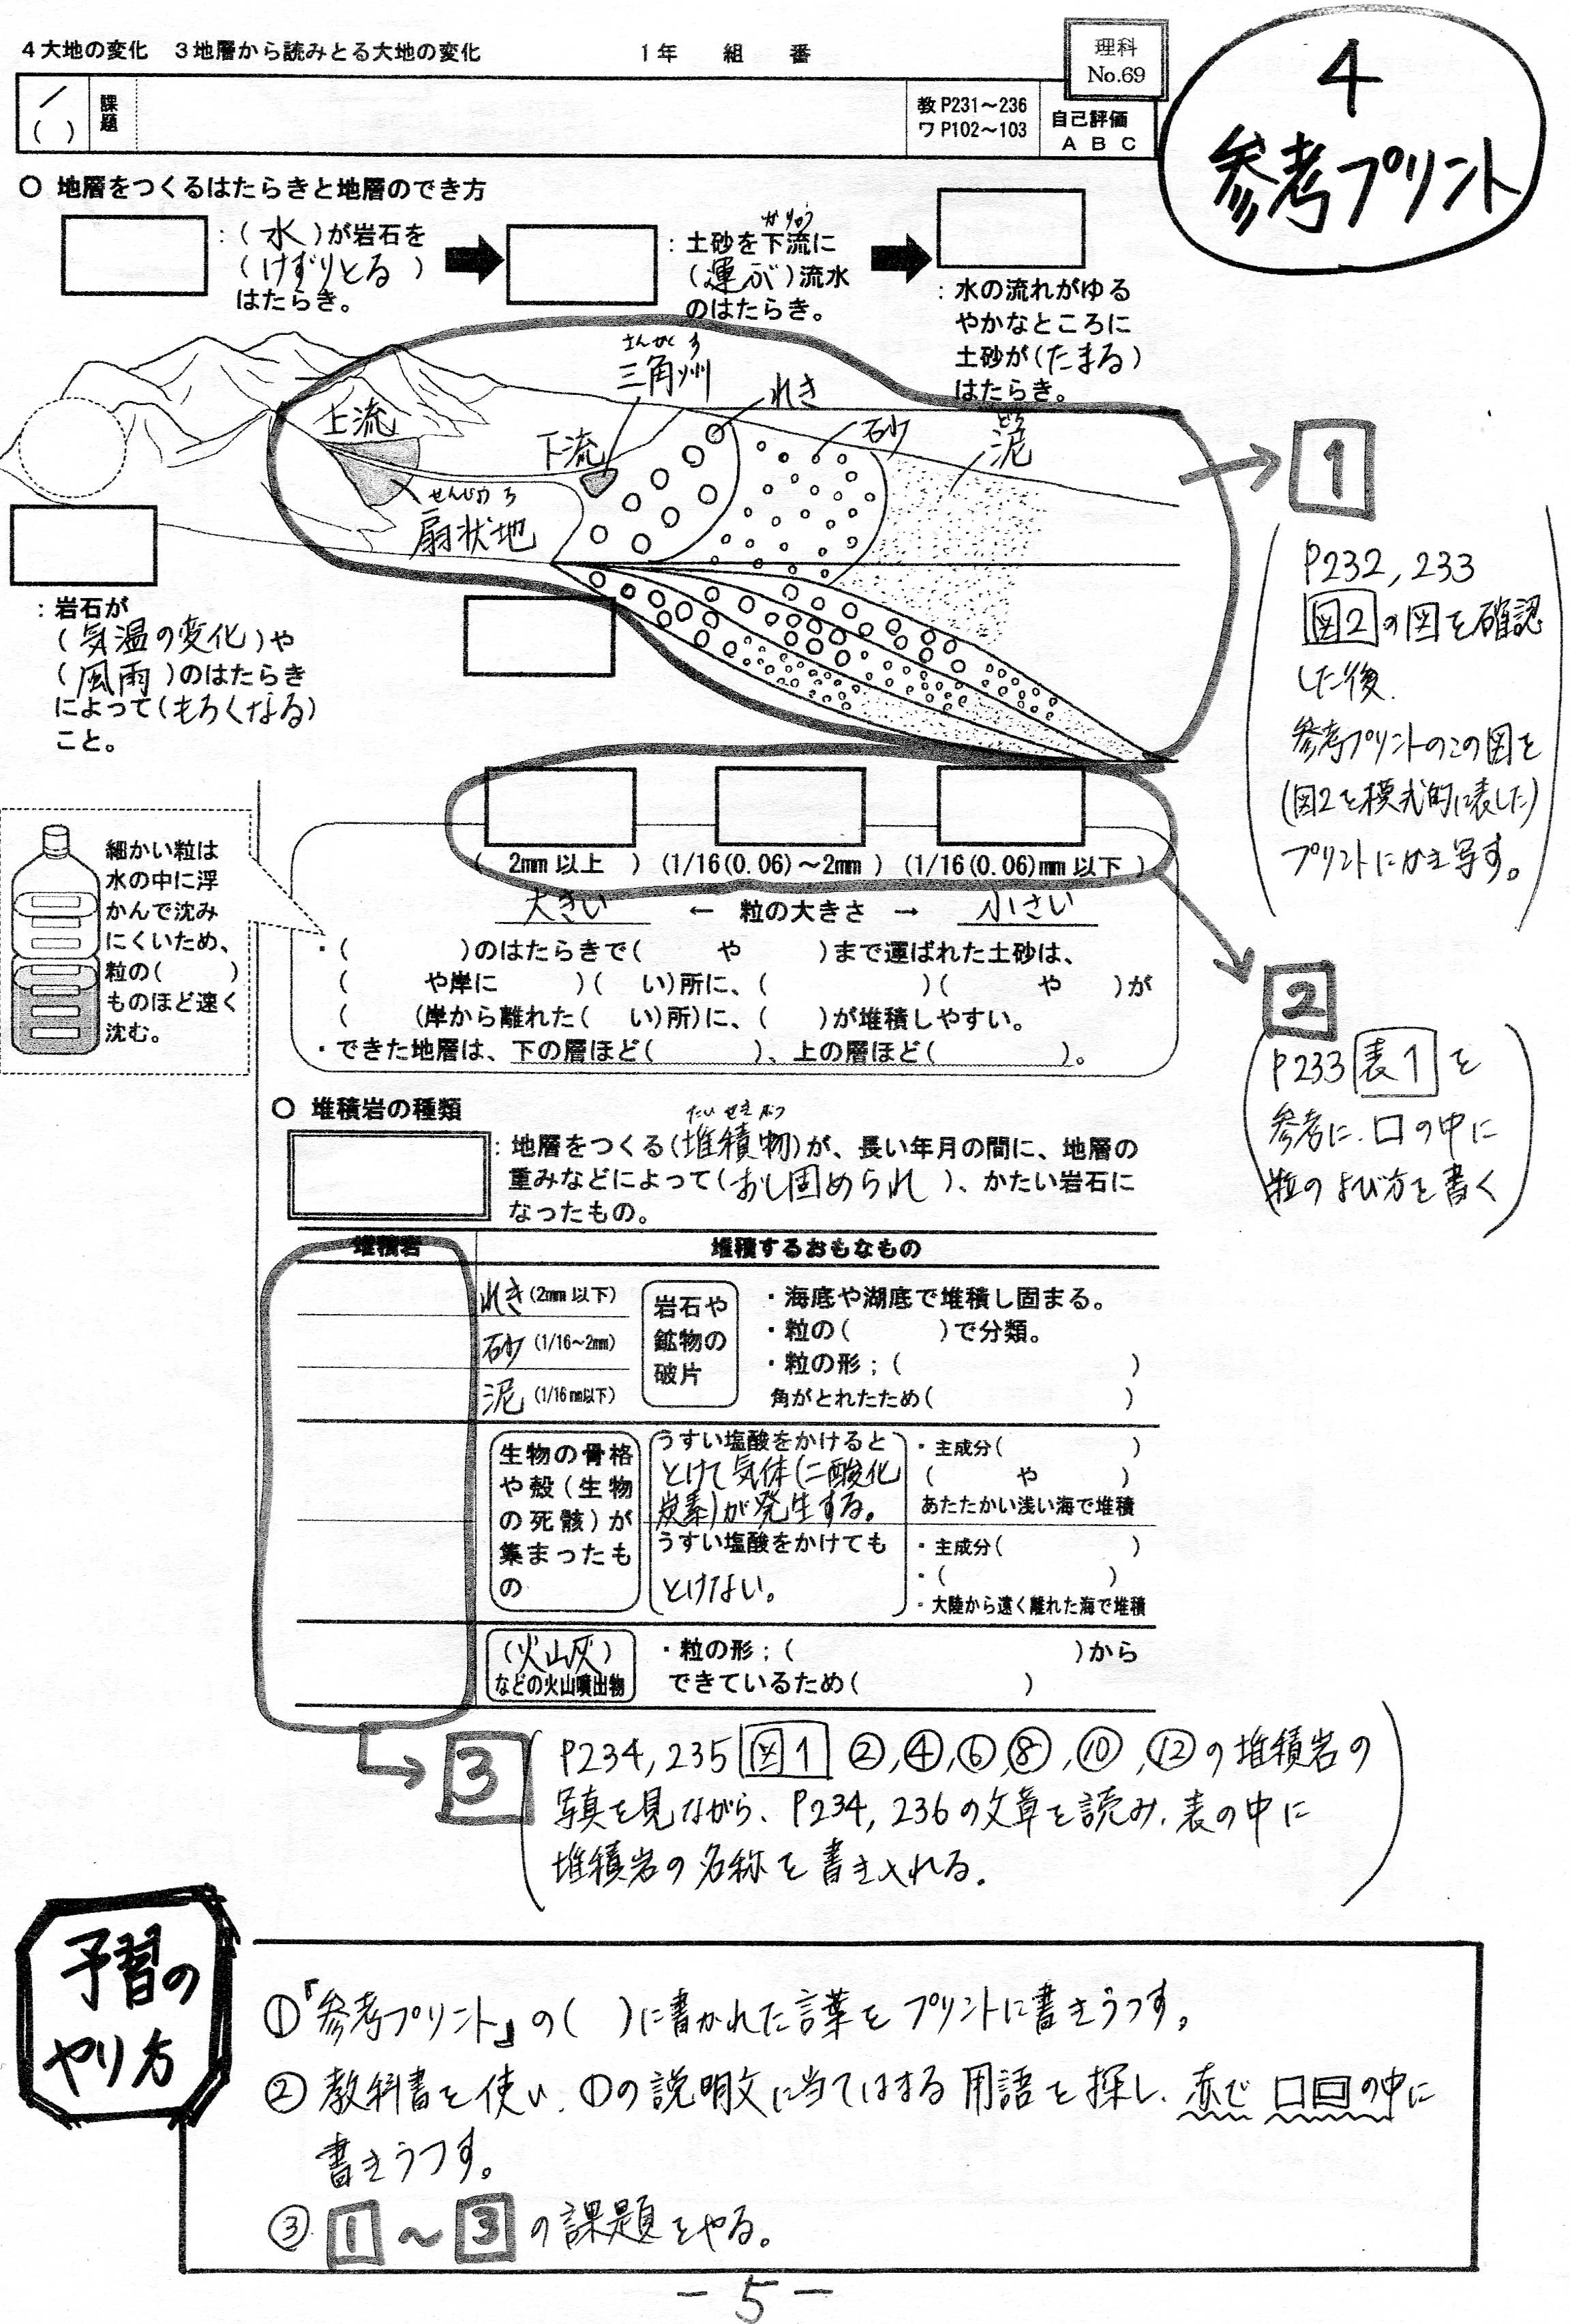 4大地の変化 3地層から読みとる大地の変化 1年 組 番
理科
No.69
4
参考プリント
/
( )
課題
教 P231～236
ワ P102～103
自己評価
A B C
○ 地層をつくるはたらきと地層のでき方
:(水)が岩石を
(けずりとる)
はたらき。
:土砂を下流に
かりゅう
(運ぶ)流水
のはたらき。
:水の流れがゆる
やかなところに
土砂が(たまる)
はたらき。
さんかくす
三角州
れき
砂
どろ
泥
上流
下流
せんじょうち
扇状地
:岩石が
(気温の変化)や
(風雨)のはたらき
によって(もろくなる)
こと。
1
P232, 233
図2の図を確認
した後、
参考プリントのこの図を
(図2を模式的に表した)
プリントにかき写す。
(2mm以上) (1/16(0.06)～2mm) (1/16(0.06)mm以下)
大きい ← 粒の大きさ → 小さい
細かい粒は
水の中に浮
かんで沈み
にくいため、
粒の( )
ものほど速く
沈む。
・( )のはたらきで( や )まで運ばれた土砂は、
( や岸に )( い)所に、( )( や )が
( (岸から離れた( い)所)に、( )が堆積しやすい。
・できた地層は、下の層ほど( )、上の層ほど( )。
2
P233 表1を
参考に、□の中に
粒のよび方を書く
○ 堆積岩の種類
たいせきぶつ
:地層をつくる(堆積物)が、長い年月の間に、地層の
重みなどによって(おし固められ)、かたい岩石に
なったもの。
堆積岩 堆積するおもなもの
れき(2mm以下)
砂(1/16～2mm)
泥(1/16mm以下)
岩石や
鉱物の
破片
・海底や湖底で堆積し固まる。
・粒の( )で分類。
・粒の形;( )
角がとれたため( )
生物の骨格
や殻(生物
の死骸)が
集まったも
の
うすい塩酸をかけると
とけて気体(二酸化
炭素)が発生する。
・主成分( )
( や )
あたたかい浅い海で堆積
うすい塩酸をかけても
とけない。
・主成分( )
・( )
・大陸から遠く離れた海で堆積
(火山灰)
などの火山噴出物
・粒の形;( )から
できているため( )
3
P234, 235 図1 ②,④,⑥,⑧,⑩,⑫の堆積岩の
写真を見ながら、P234, 236の文章を読み、表の中に
堆積岩の名称を書き入れる。
予習の
やり方
①「参考プリント」の( )に書かれた言葉をプリントに書きうつす。
②教科書を使い、①の説明文に当てはまる用語を探し、赤で□□の中に
書きうつす。
③1～3の課題をやる。
－5－